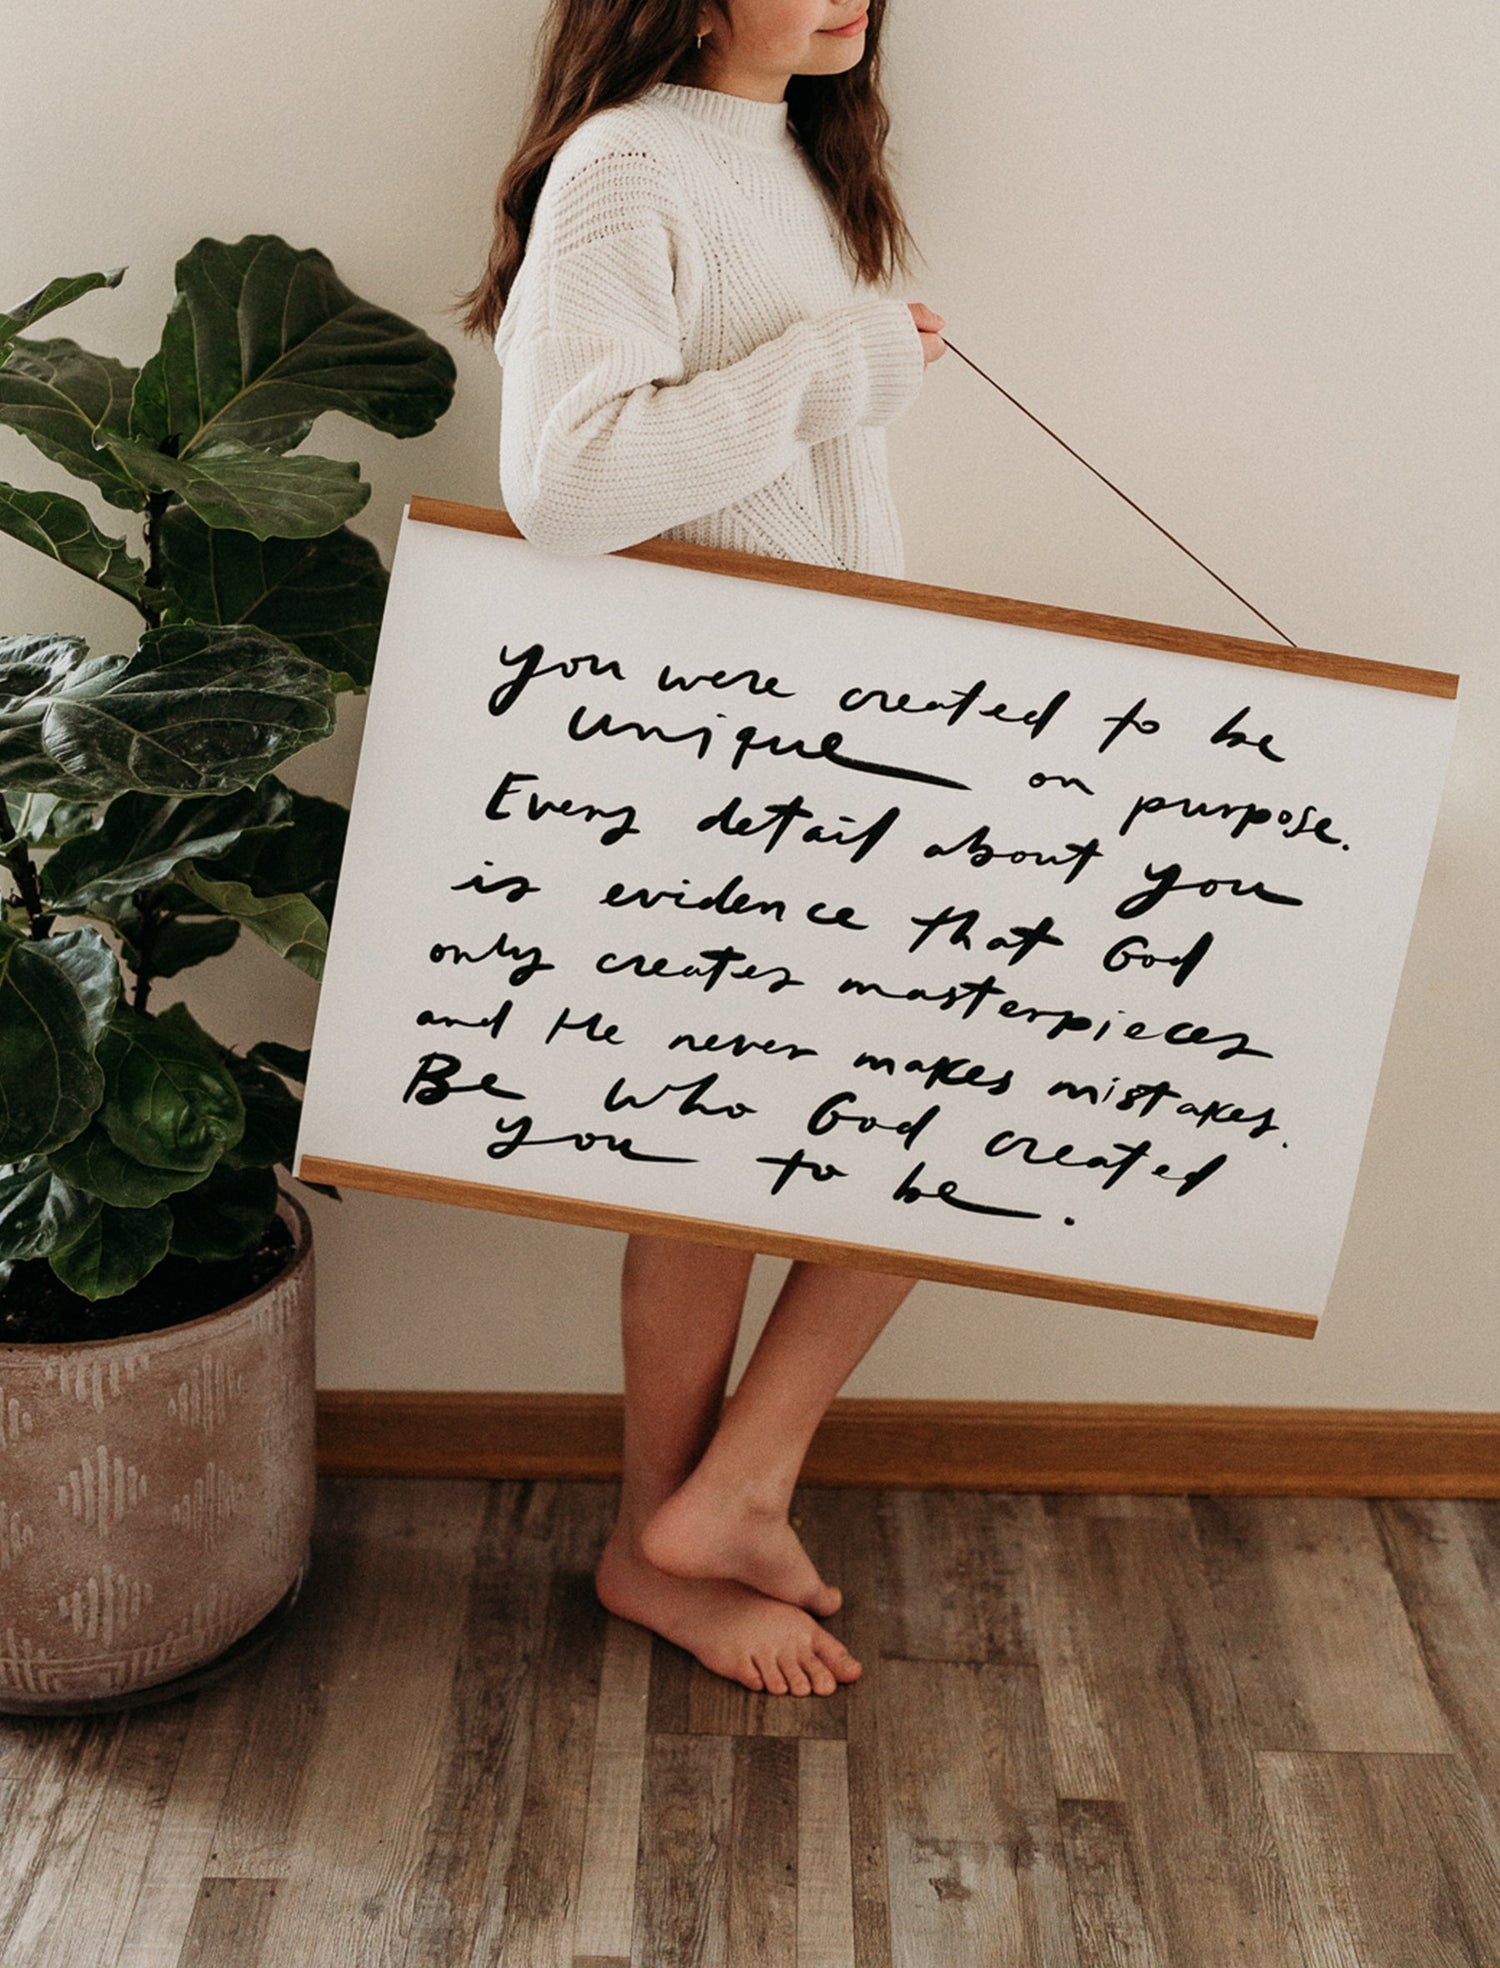 you were created to be
unique on purpose.
Every detail about you
is evidence that God
only creates masterpieces
and He never makes mistakes.
Be who God created
you to be.